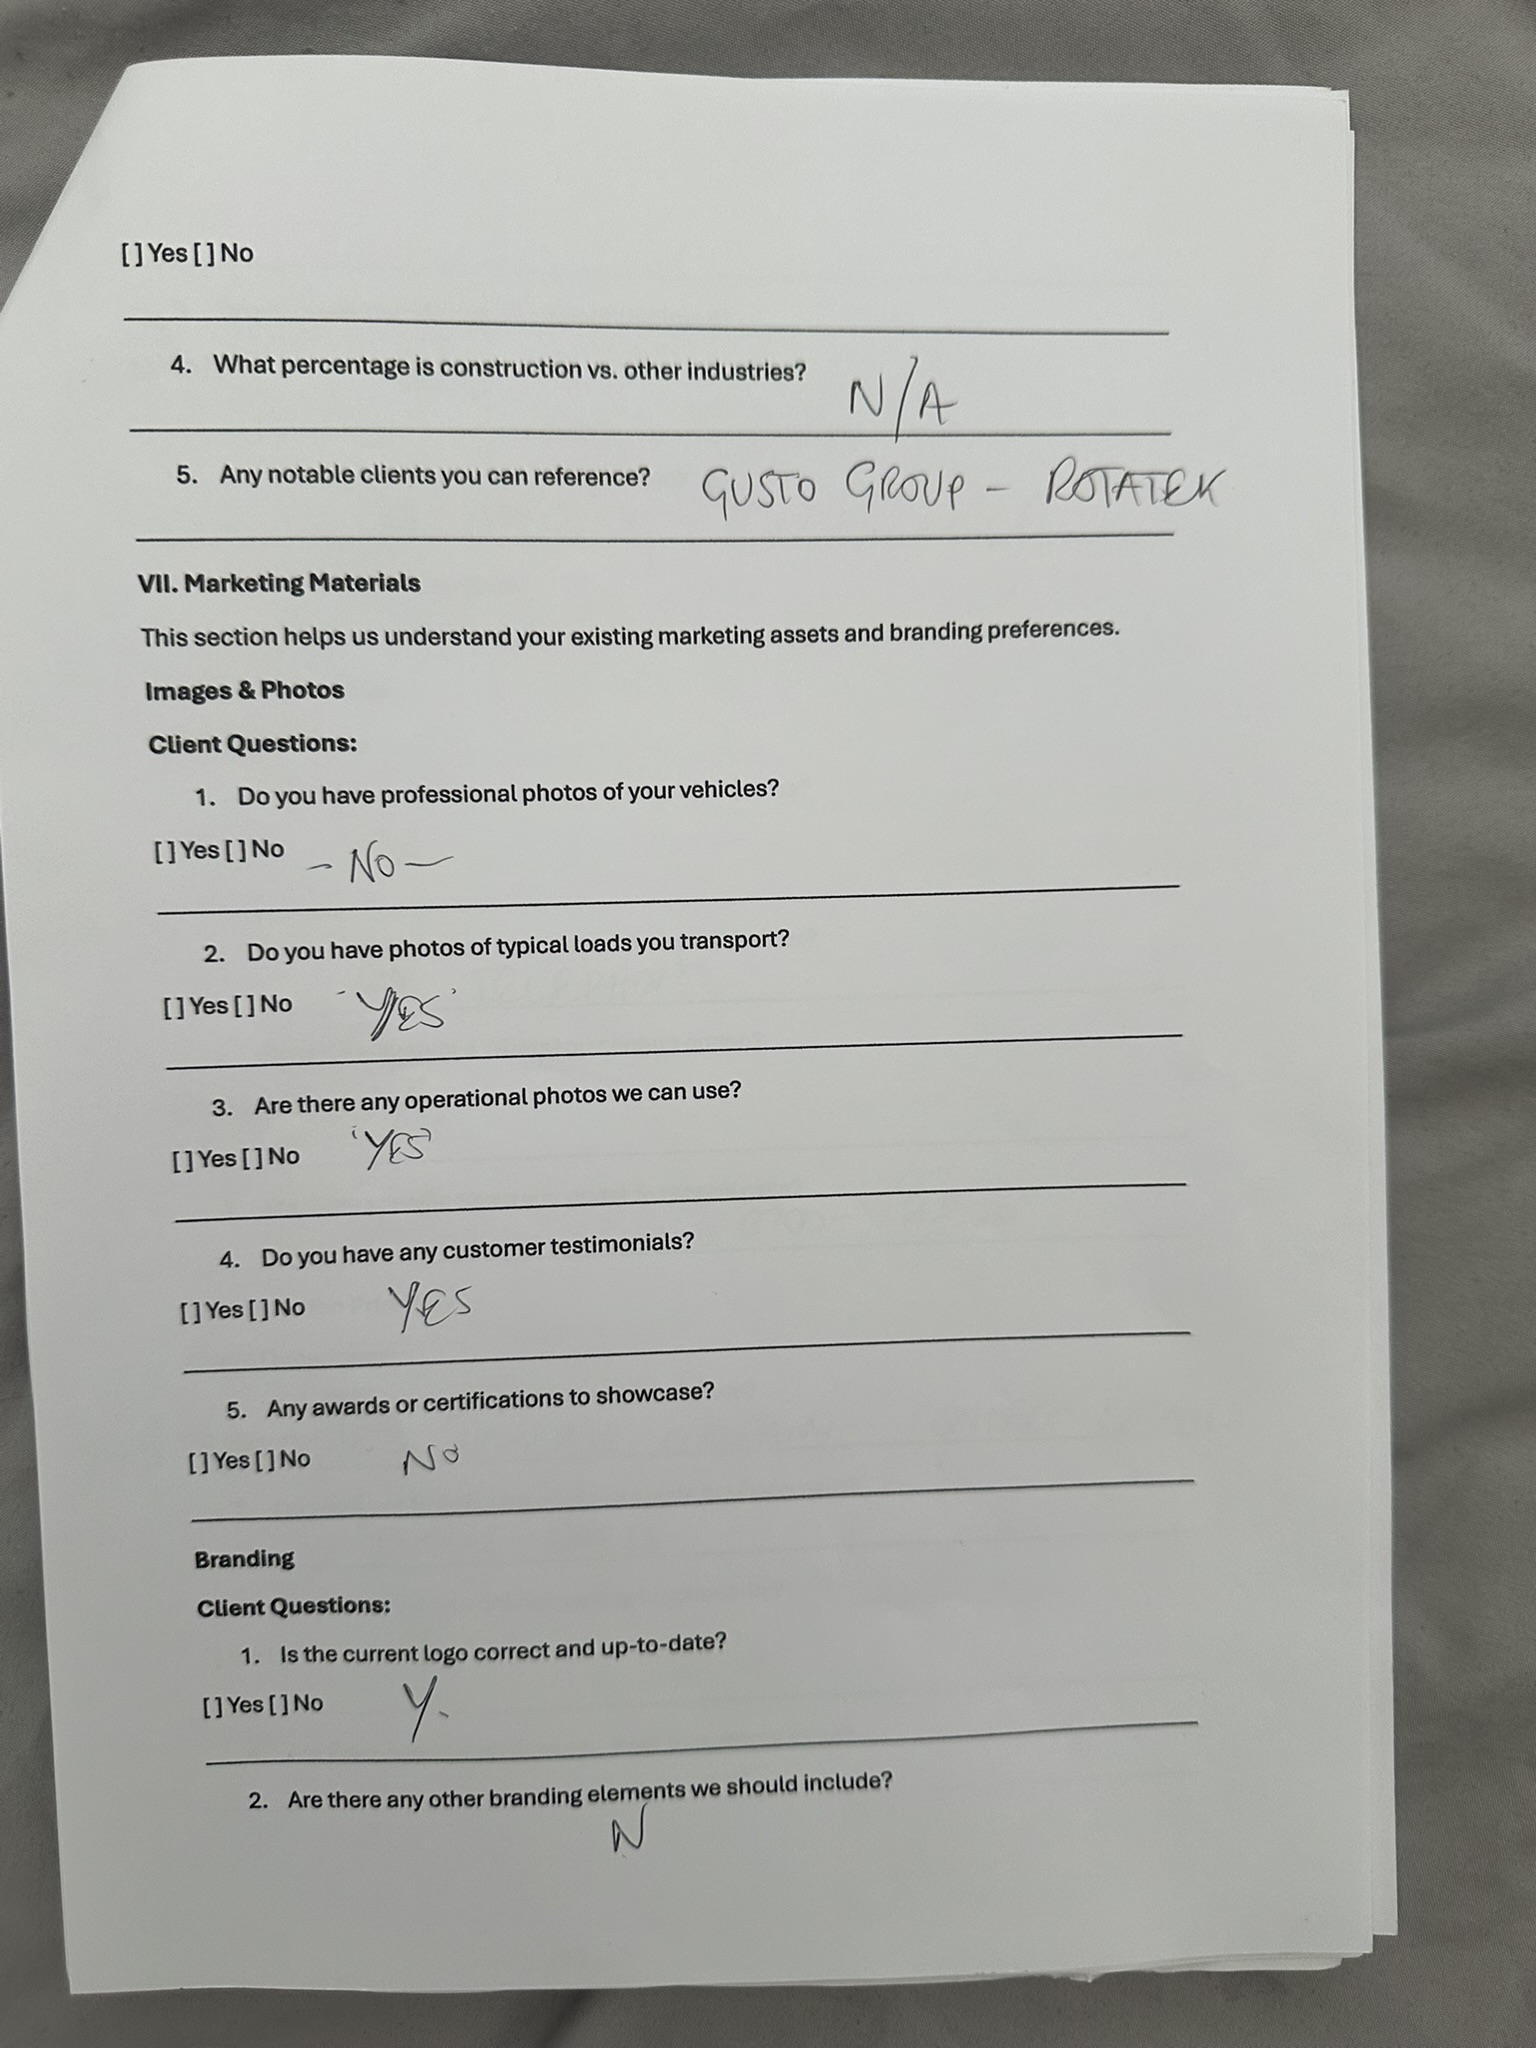 [ ] Yes [ ] No
4. What percentage is construction vs. other industries? N/A
5. Any notable clients you can reference? GUSTO GROUP - ROTATEK
VII. Marketing Materials
This section helps us understand your existing marketing assets and branding preferences.
Images & Photos
Client Questions:
1. Do you have professional photos of your vehicles?
[ ] Yes [ ] No - NO -
2. Do you have photos of typical loads you transport?
[ ] Yes [ ] No 'YES'
3. Are there any operational photos we can use?
[ ] Yes [ ] No 'YES'
4. Do you have any customer testimonials?
[ ] Yes [ ] No YES
5. Any awards or certifications to showcase?
[ ] Yes [ ] No NO
Branding
Client Questions:
1. Is the current logo correct and up-to-date?
[ ] Yes [ ] No Y.
2. Are there any other branding elements we should include?
N